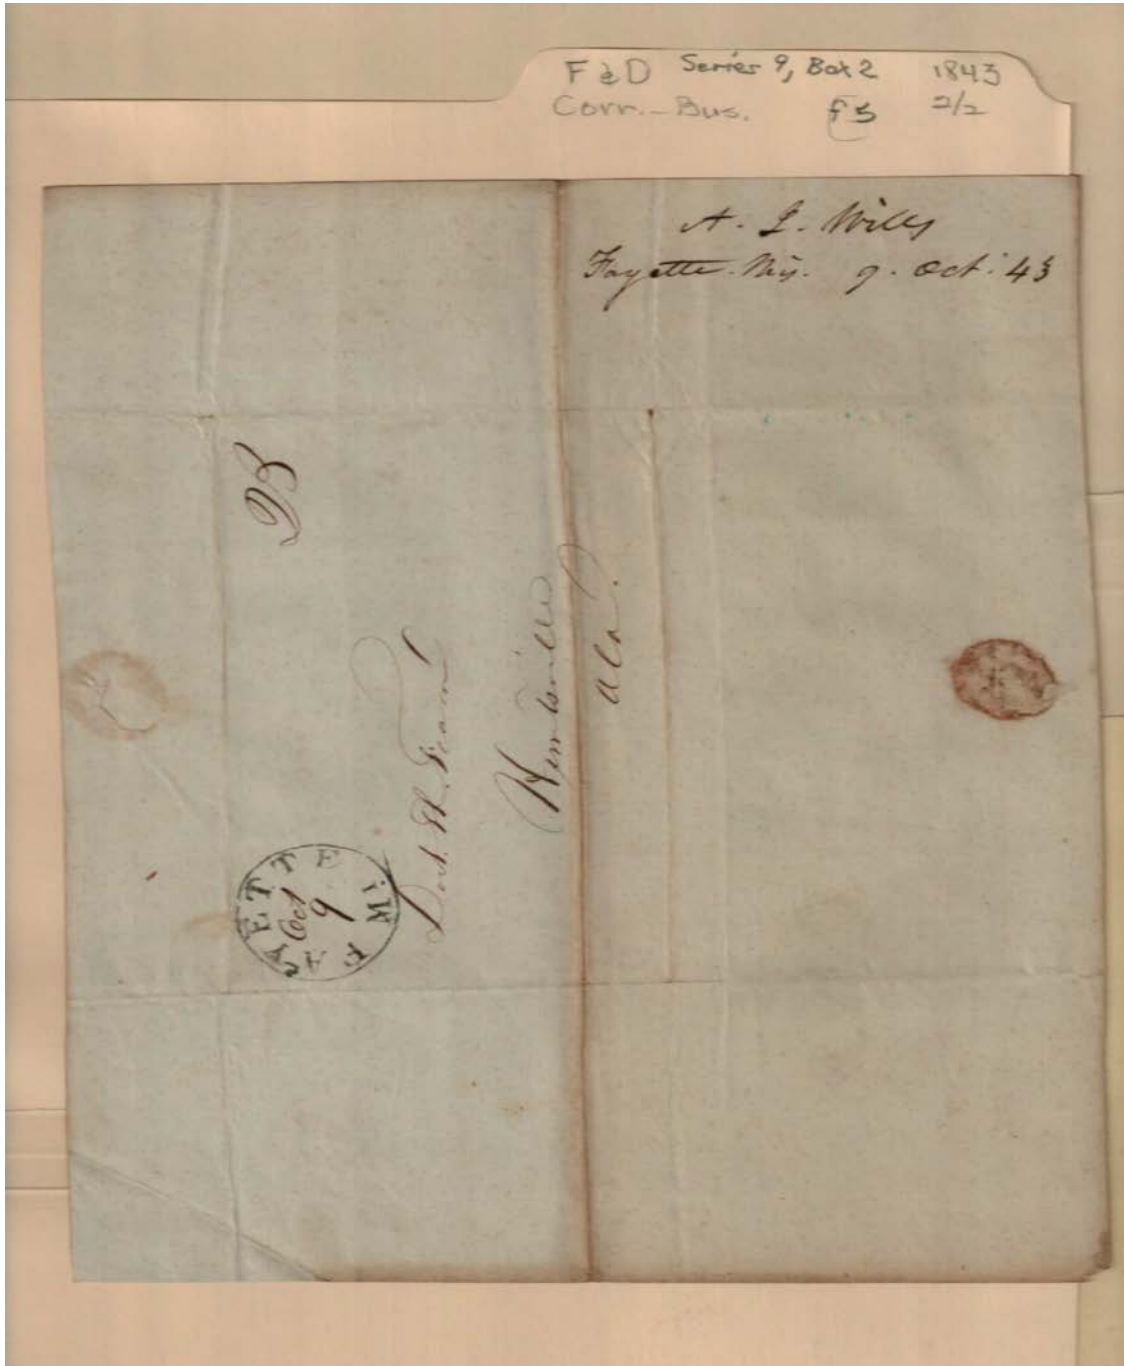 F & D Series 9, Box 2 1843
Corr.-Bus. f5 2/2
A. L. Wills
Fayette. Mis. 9. Oct. 43
25
FAYETTE
Oct
9
Mi.
Doct. Th. Fearn
Huntsville
Ala.